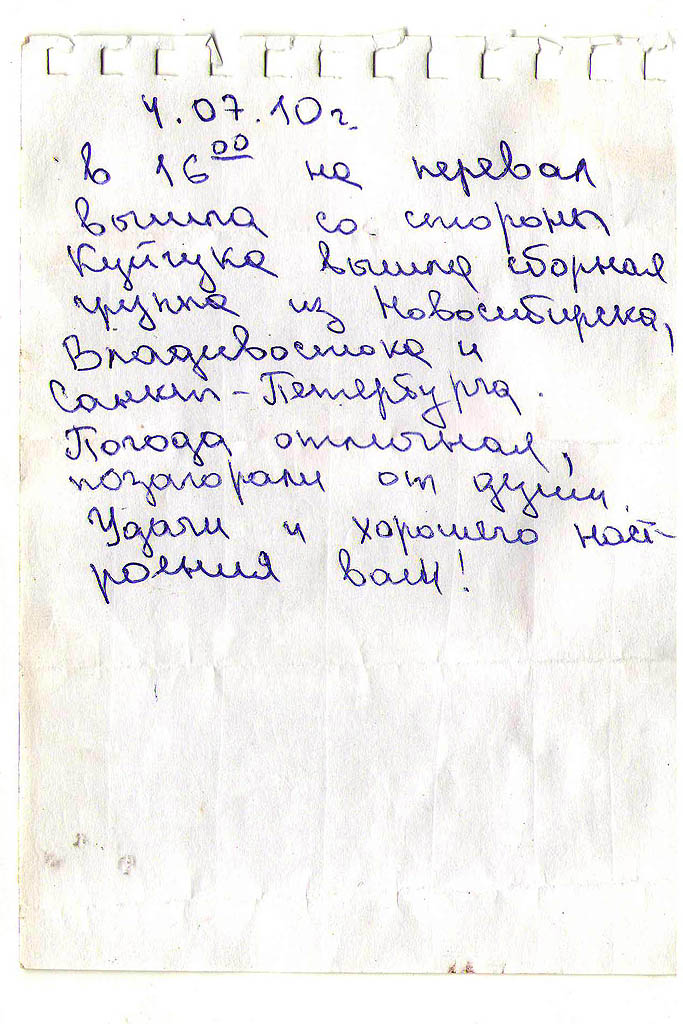 4.07.10г.
в 16⁰⁰ на перевал
вышла со стороны
Куйгука вышла сборная
группа из Новосибирска,
Владивостока и
Санкт-Петербурга.
Погода отличная,
позагорали от души.
Удачи и хорошего наст-
роения вам!